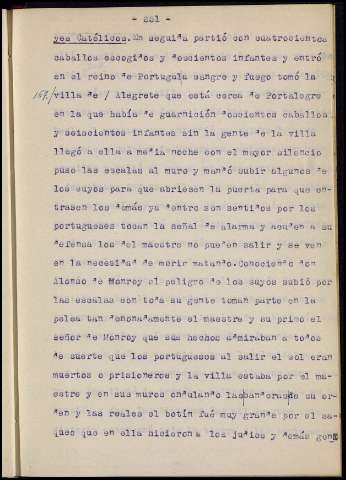 - 221 -
yes Católicos. En seguida partió con cuatrocientos
caballos escogidos y doscientos infantes y entró
en el reino de Portugala sangre y fuego tomó la
villa de / Alegrete que está cerca de Portalegre
en la que había de guarnición doscientos caballos
y seiscientos infantes sin la gente de la villa
llegó a ella a media noche con el mayor silencio
puso las escalas al muro y mandó subir algunos de
los suyos para que abriesen la puerta para que en-
trasen los demás ya dentro son sentidos por los
portugueses tocan la señal de alarma y acuden a su
defensa los del maestre no pueden salir y se ven
en la necesidad de morir matando. Conociendo don
Alonso de Monroy el peligro de los suyos subió por
las escalas con toda su gente toman parte en la
pelea tan denonadamente el maestre y su primo el
señor de Monroy que sus hechos admiraban a todos
de suerte que los portugueses al salir el sol eran
muertos o prisioneros y la villa estaba por el ma-
estre y en sus muros ondulando las banderas de su or-
den y las reales el botín fué muy grande por el sa-
queo que en ella hicieron los judíos y demás gen